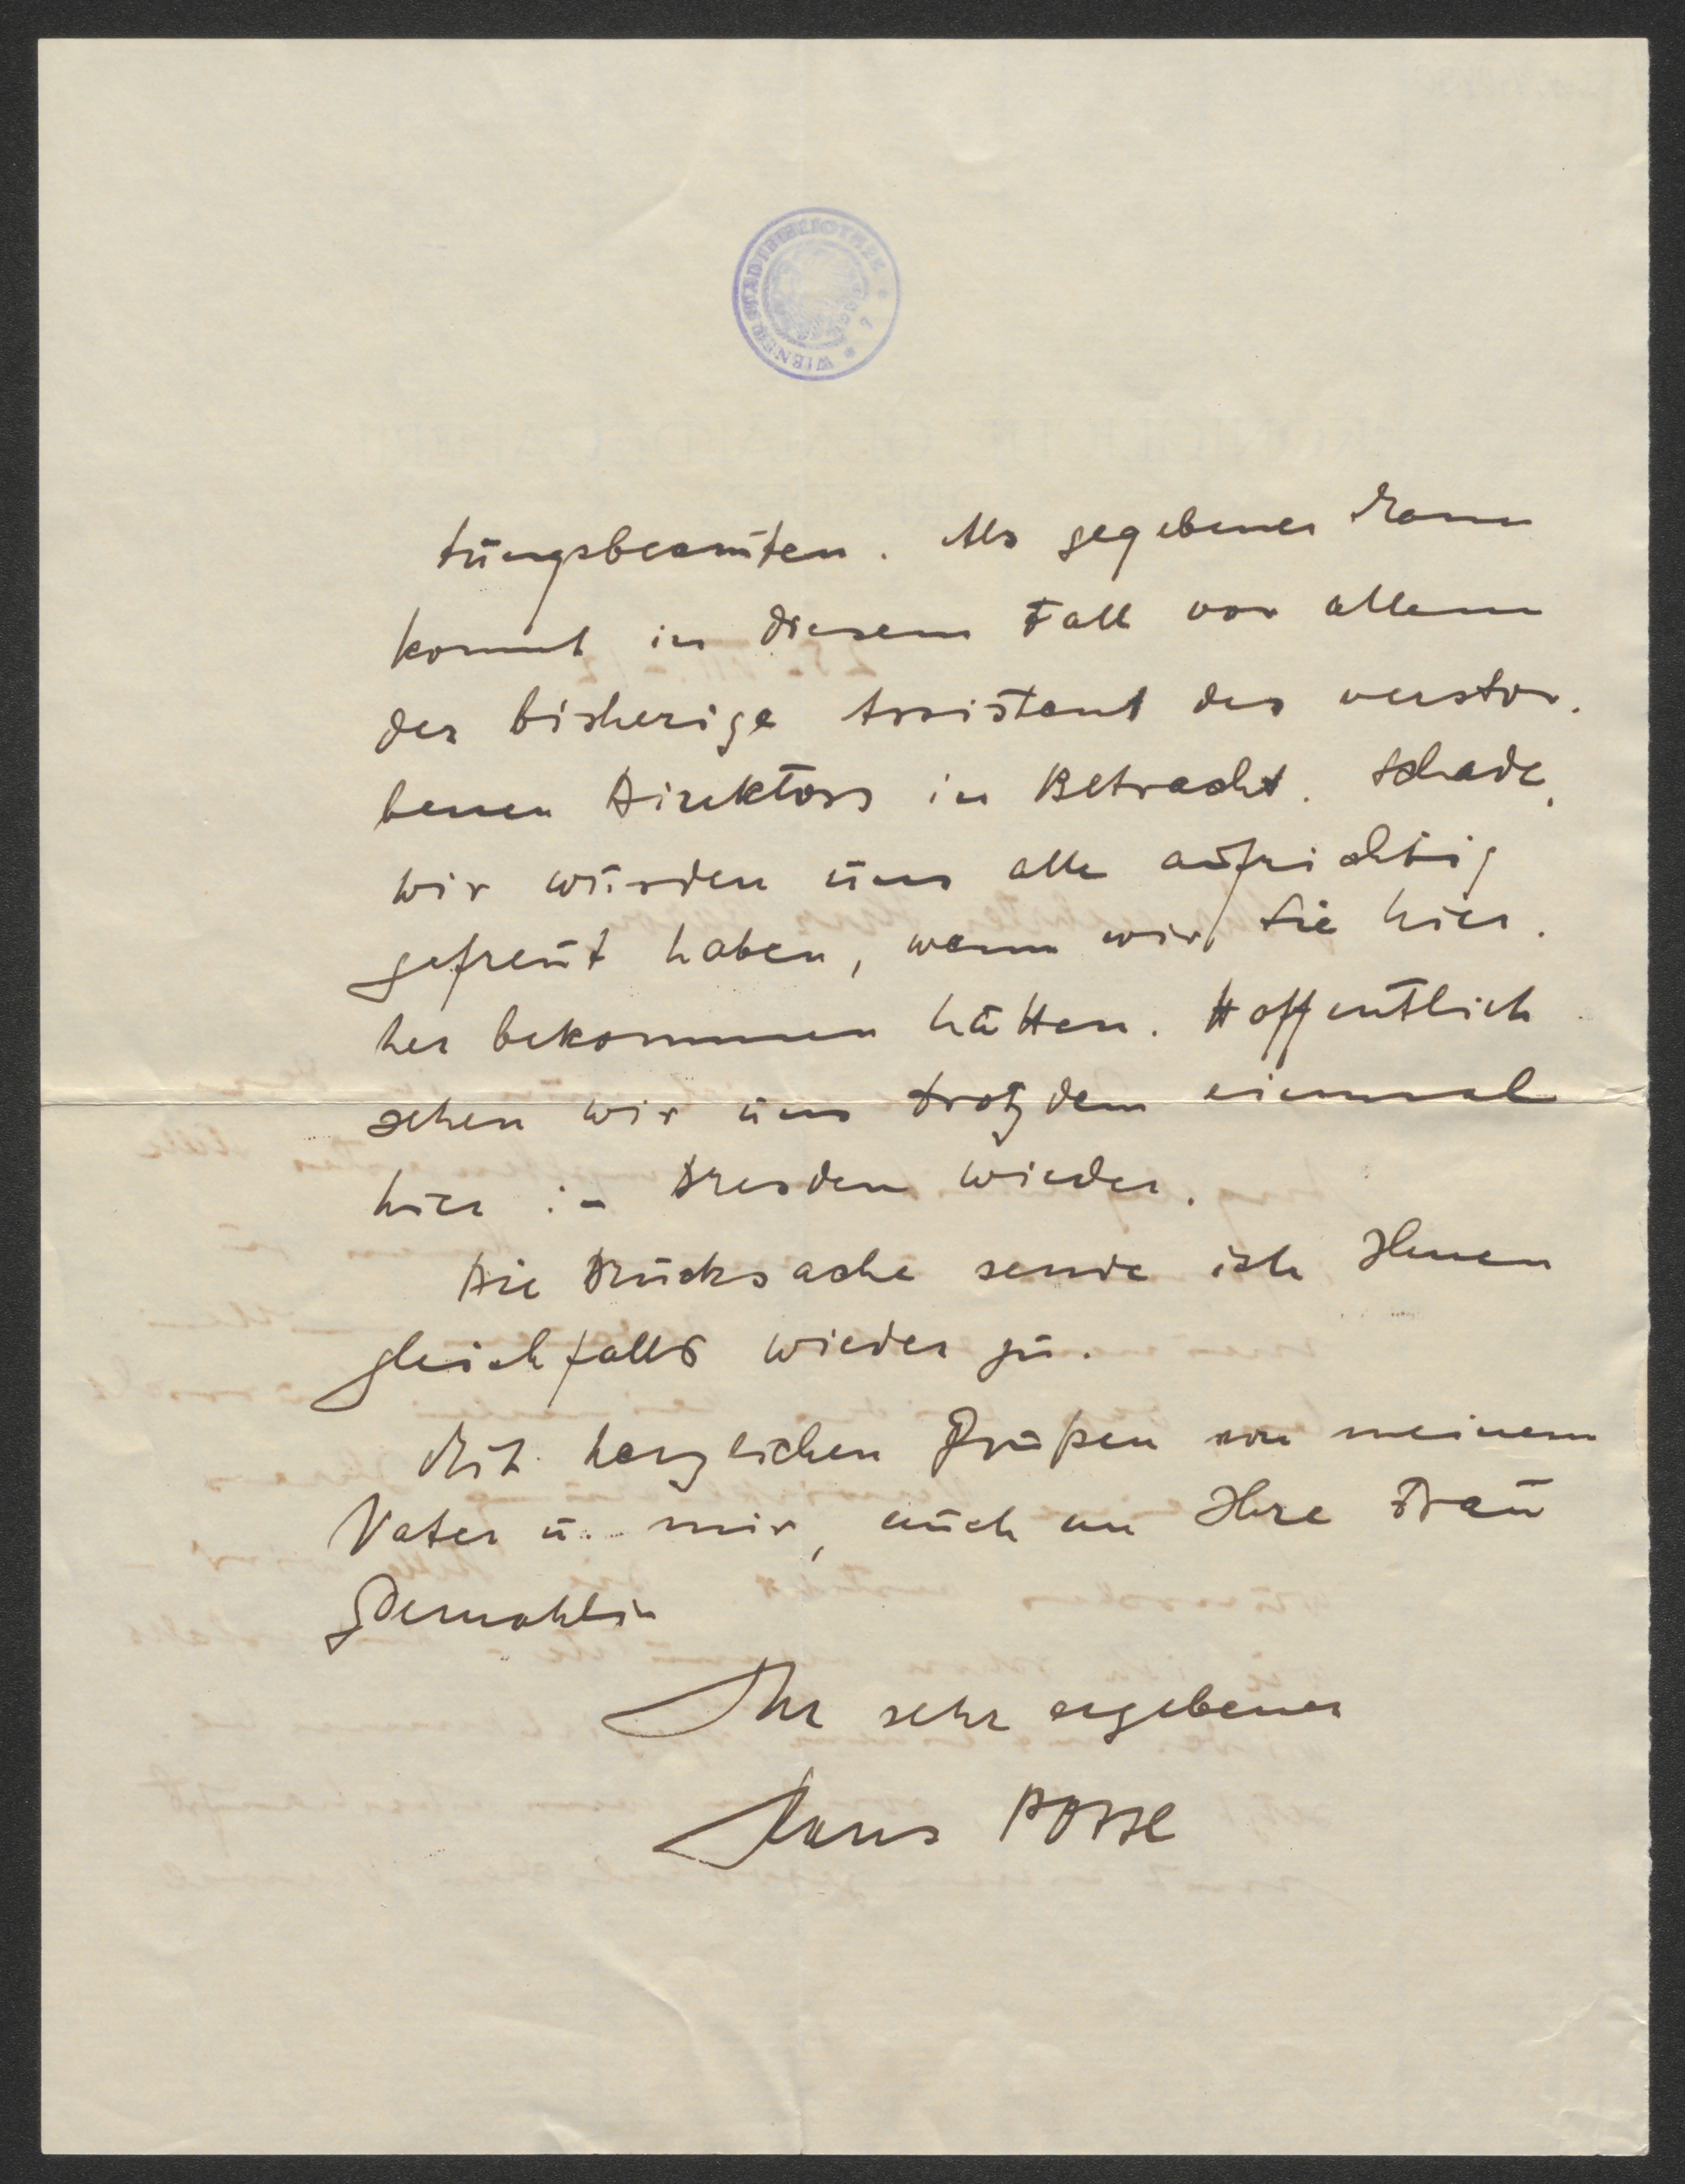 WIENER STADTBIBLIOTHEK * 7 *
tungsbeamten. Als gegebener Mann
kommt in diesem Fall vor allem
der bisherige Assistent des verstor-
benen Direktors in Betracht. Schade,
wir würden uns alle aufrichtig
gefreut haben, wenn wir Sie hier-
her bekommen hätten. Hoffentlich
sehen wir uns trotzdem einmal
hier in Dresden wieder.
Die Drucksache sende ich Ihnen
gleichfalls wieder zu.
Mit herzlichen Grüßen von meinem
Vater u. mir, auch an Ihre Frau
Gemahlin
Ihr sehr ergebener
Hans Posse